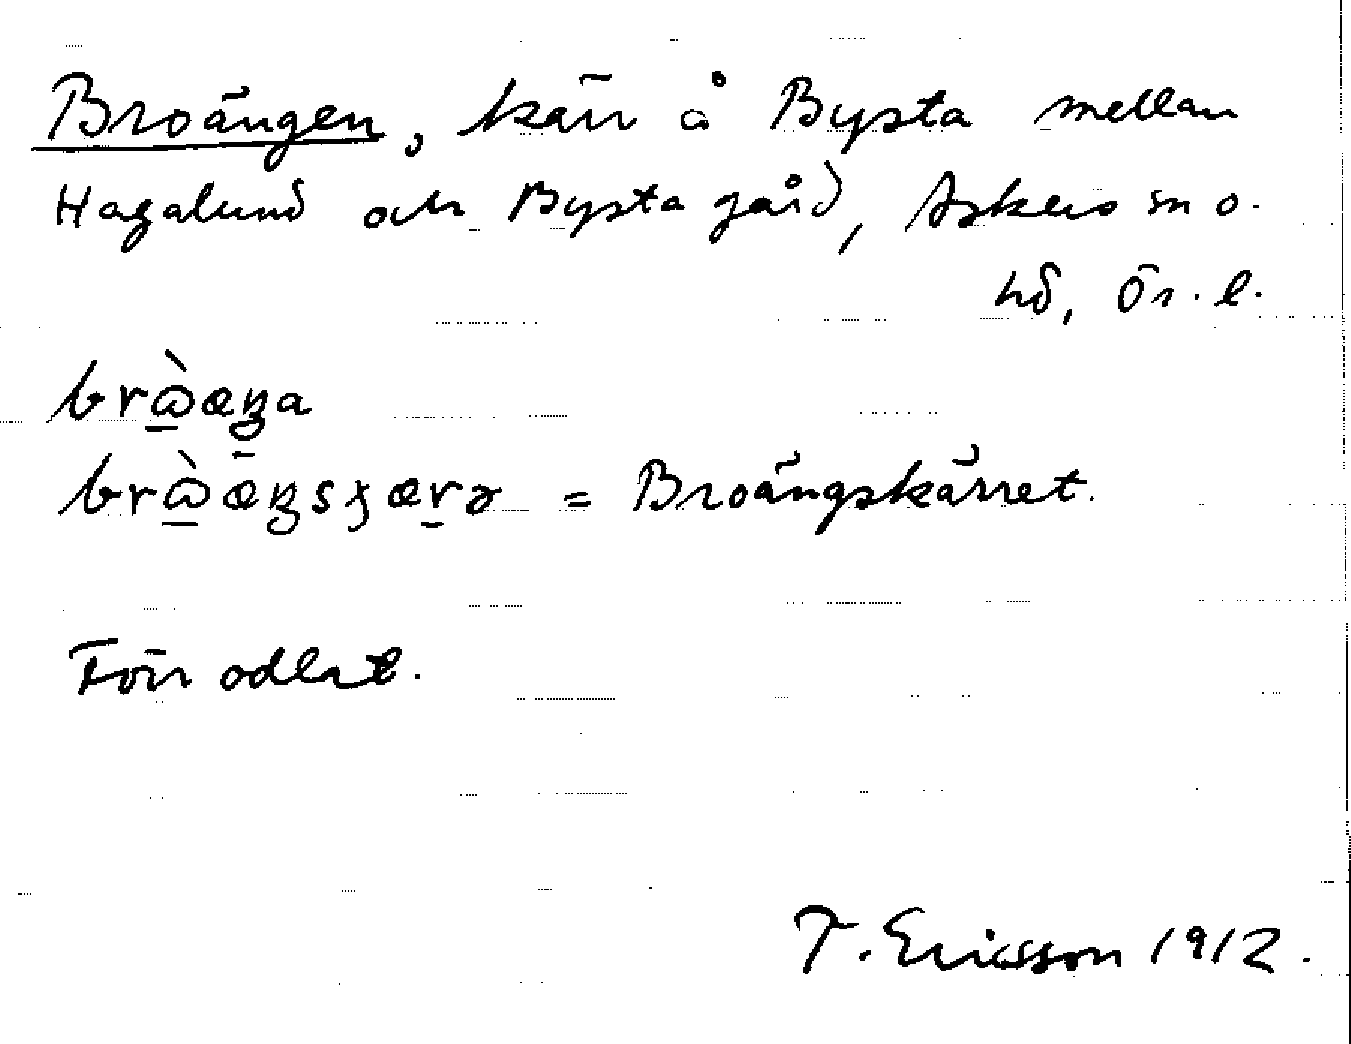 Broängen, kärr å Bysta mellan
Hagalund och Bysta gård, Askers sn o.
hd, Ör. l.
brὼæŋa
brὼæŋsȿærə = Broängskärret.
Förr odlat.
T. Ericsson 1912.